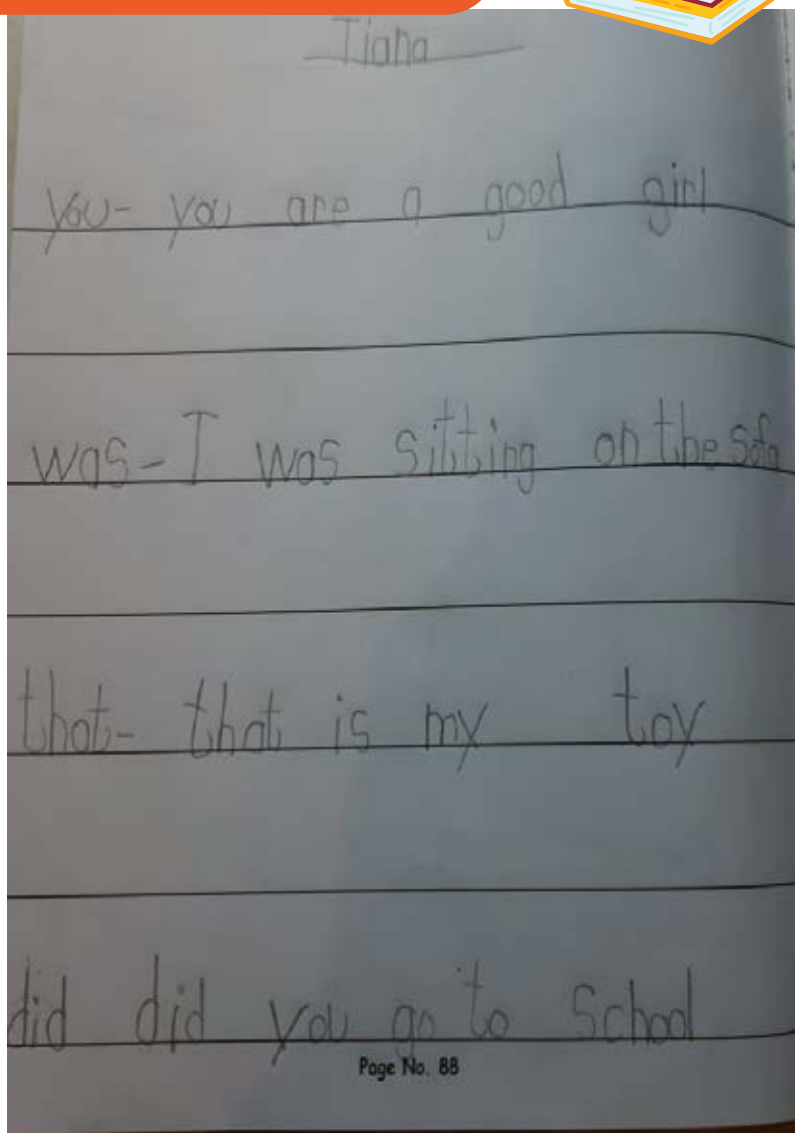 Tiana
you- you are a good girl
was- I was sitting on the sofa
that- that is my toy
did did you go to School
Page No. 88